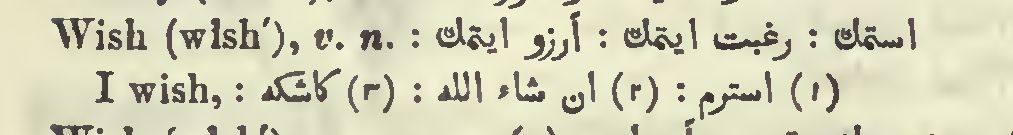 Wish (wĭsh′), v. n. : استمك : رغبت ايتمك : آرزو ايتمك
I wish, : (١) استرم : (٢) ان شاء الله : (٣) كاشكه